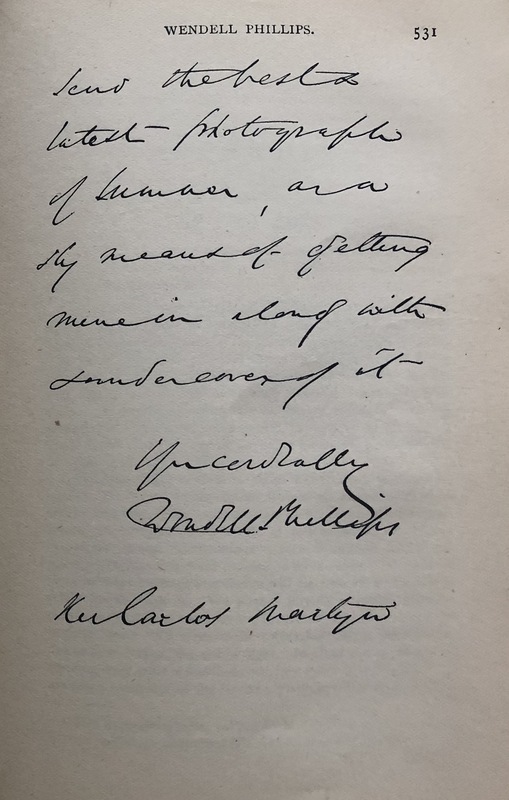 WENDELL PHILLIPS. 531
Send the best &
latest photograph
of Sumner, as a
sly means of getting
mine in along with
& under cover of it
Yrs cordially
Wendell Phillips
Rev Carlos Martyn